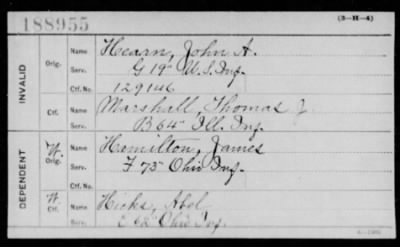 188955 (3-H-4)
INVALID
Orig. Name Hearn, John A.
Serv. G 19" U.S. Inf.
Ctf. No. 129146
Ctf. Name Marshall, Thomas J.
Serv. B 64" Ill. Inf.
DEPENDENT
W. Orig. Name Hamilton, James
Serv. F 75" Ohio Inf.
Ctf. No.
W. Ctf. Name Hicks, Abel
Serv. Ohio Inf.